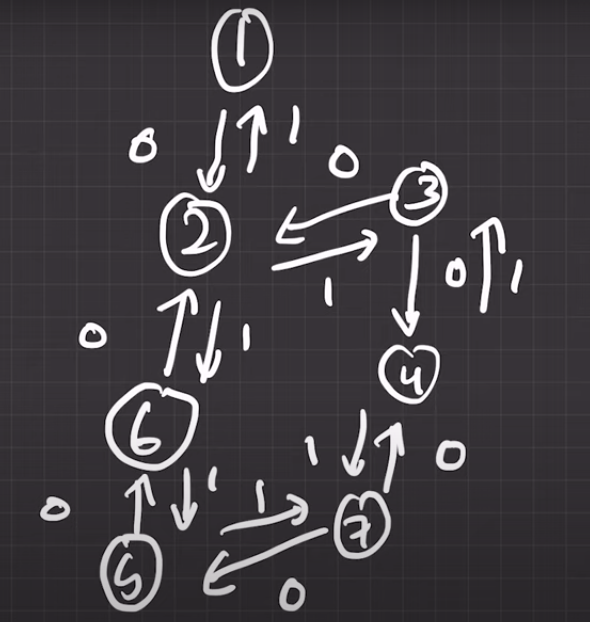 1
0 1
0 3
2
1 0 1
0 1
4
6
1 0
0 1 1 7
5
0